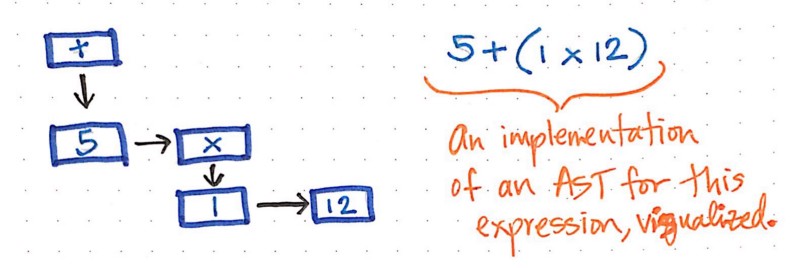 +
5 x
1 12
5+(1 x 12)
An implementation
of an AST for this
expression, visualized.